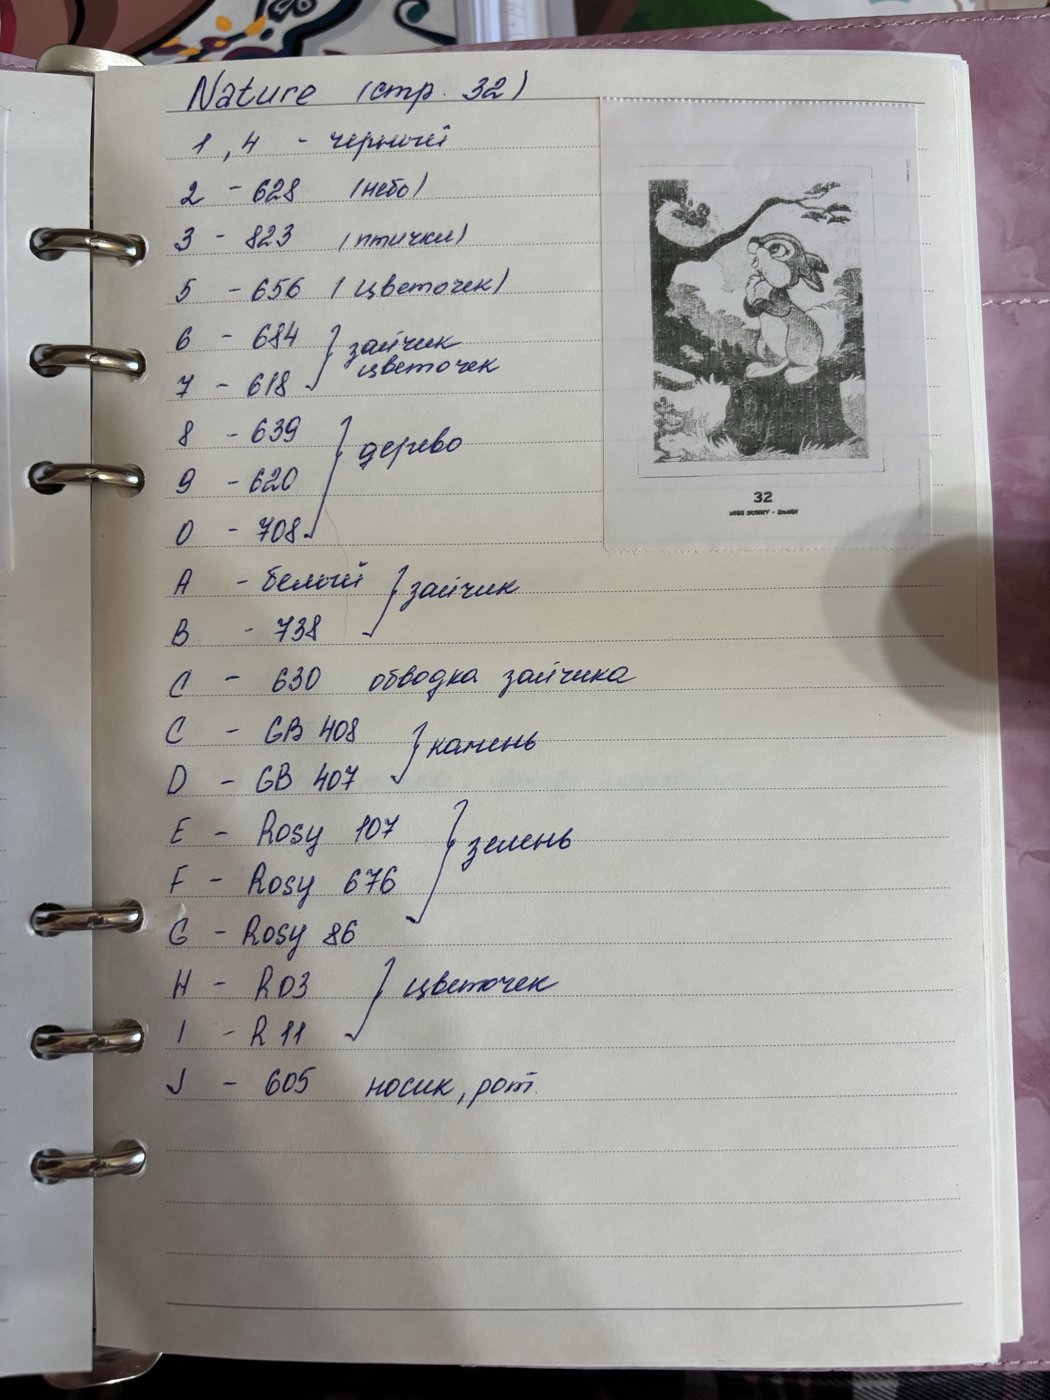 Nature (стр. 32)
1, 4 - черный
2 - 628 (небо)
3 - 823 (птички)
5 - 656 (цветочек)
6 - 684
7 - 618
зайчик
цветочек
8 - 639
9 - 620
0 - 708
дерево
A - белый
B - 738
зайчик
C - 630 обводка зайчика
C - GB 408
D - GB 407
камень
E - Rosy 107
F - Rosy 676
G - Rosy 86
зелень
H - R03
I - R 11
цветочек
J - 605 носик, рот.
32
MISS BUNNY - BAMBI